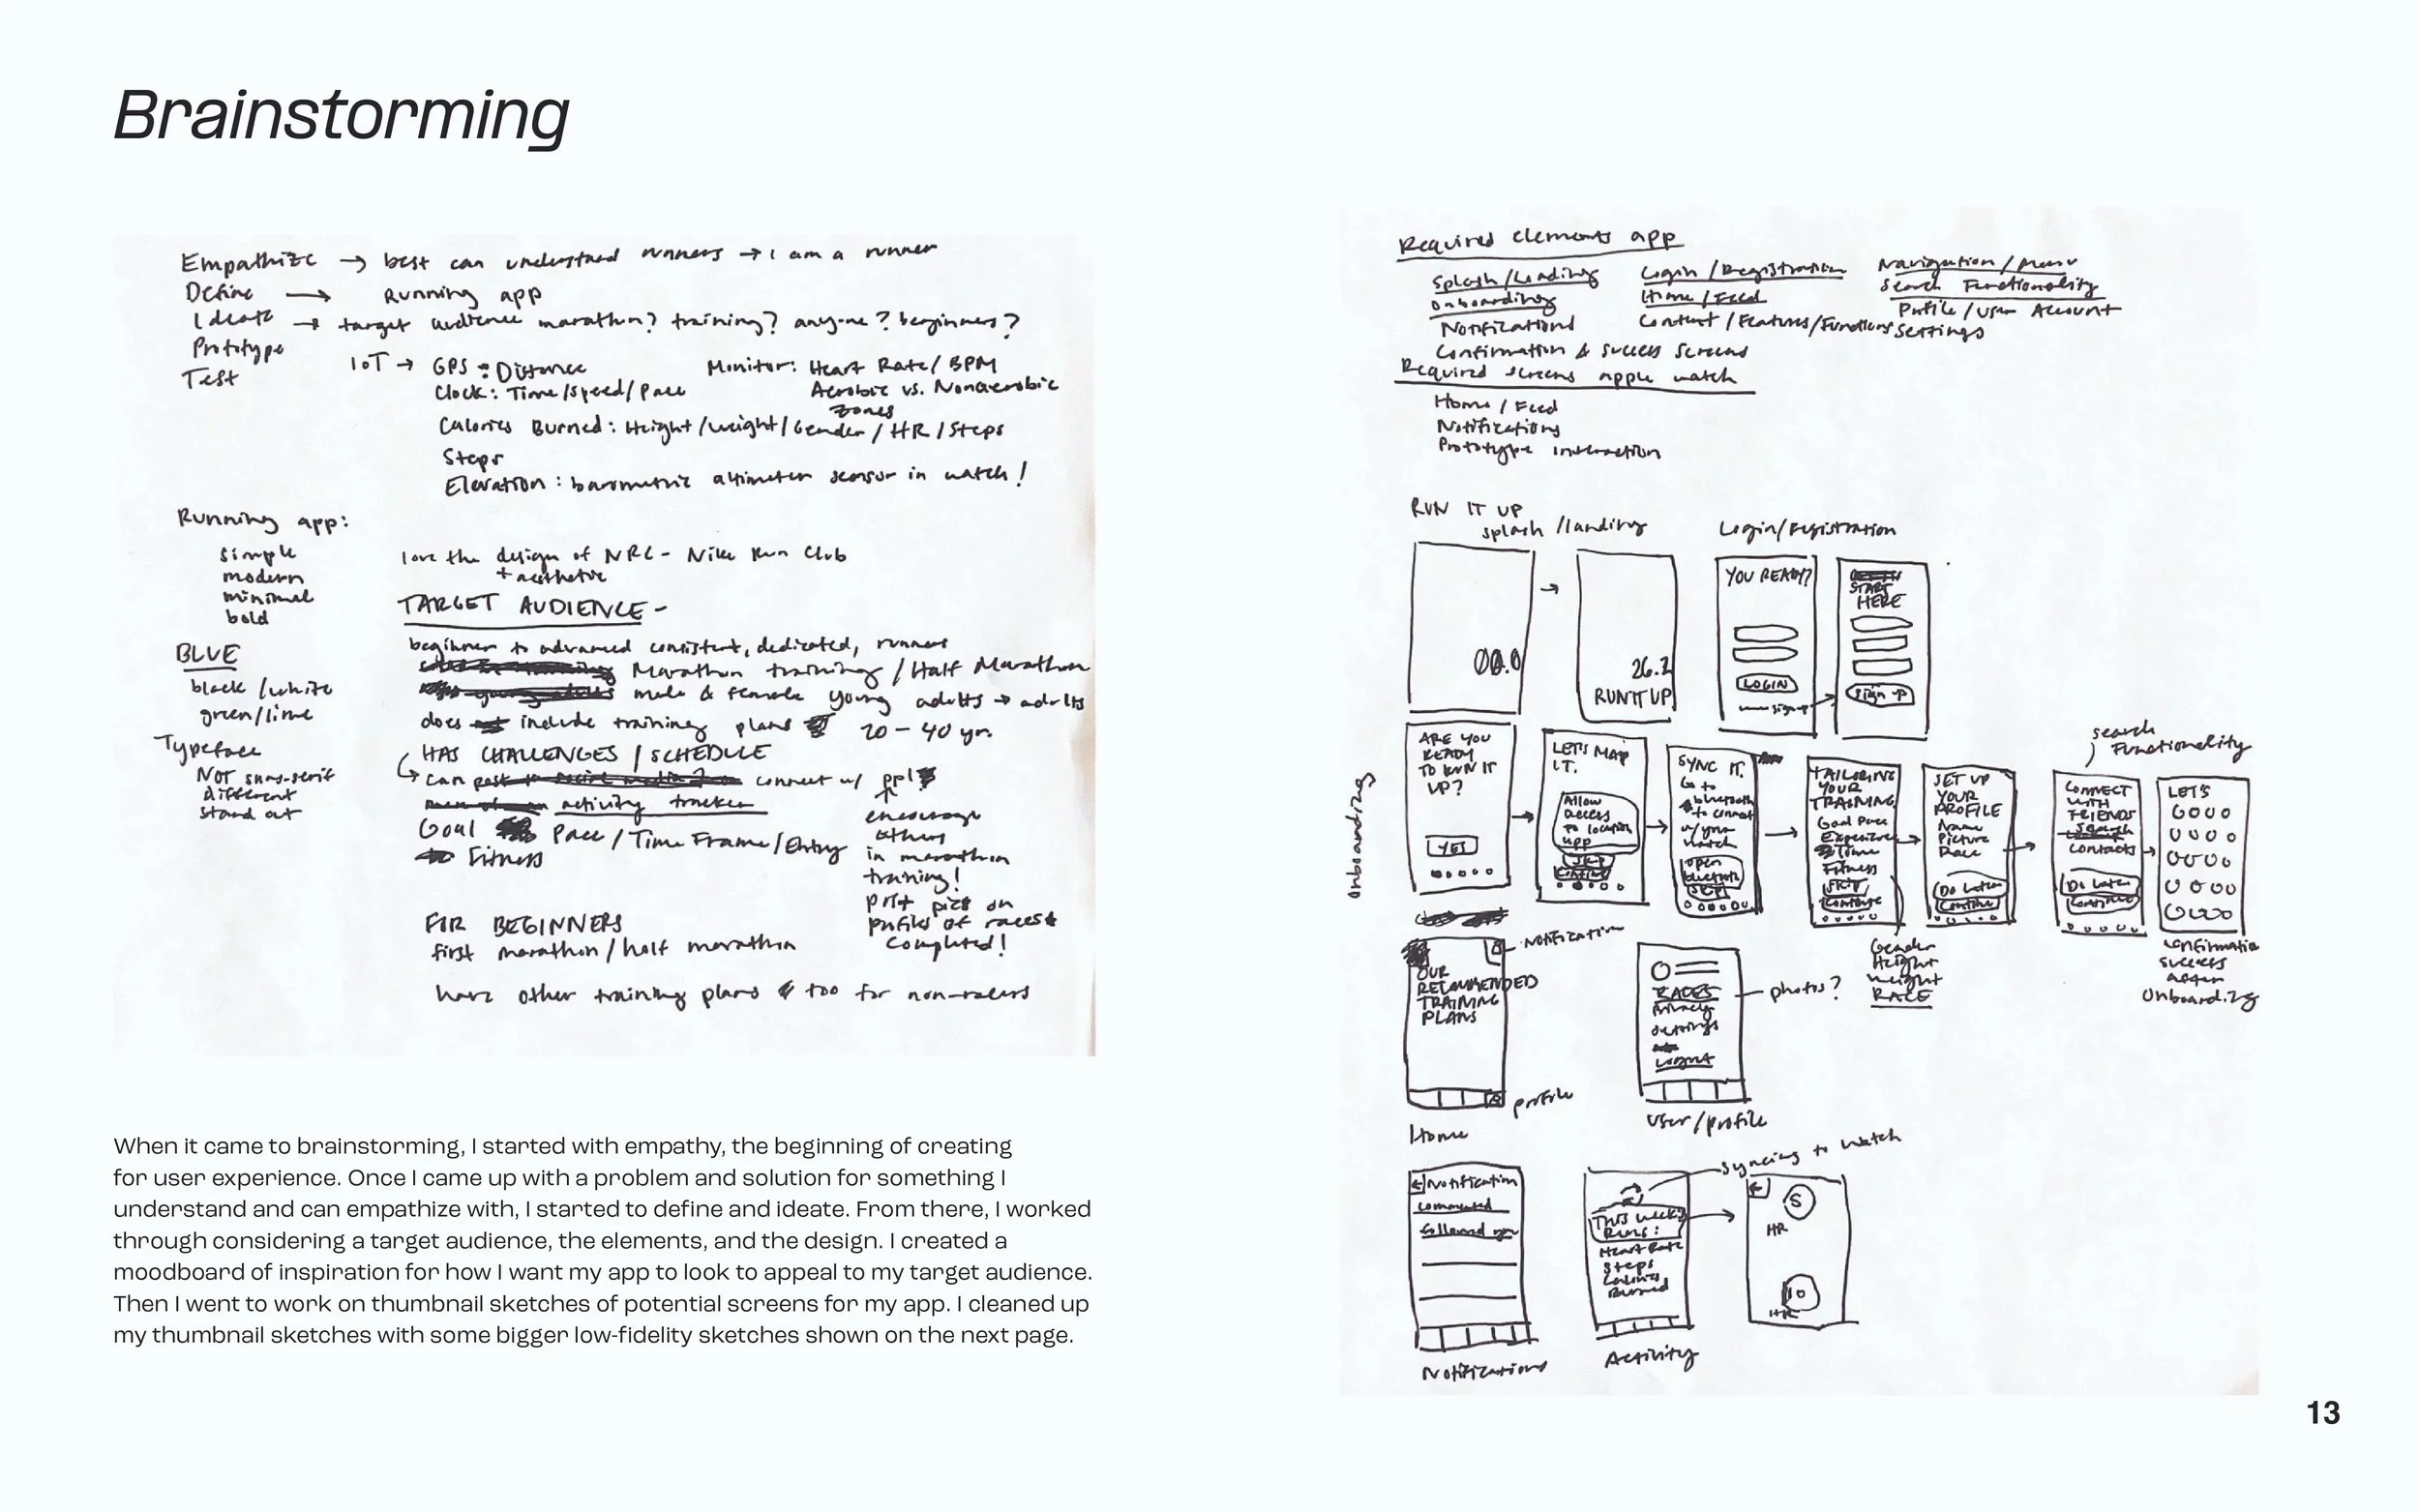 Brainstorming
Empathize → best can understand runners → I am a runner
Define → Running app
Ideate → target audience marathon? training? anyone? beginners?
Prototype
Test
IoT → GPS: Distance
Monitor: Heart Rate/BPM
Clock: Time/Speed/Pace
Aerobic vs. Nonaerobic
zones
Calories Burned: Height/weight/Gender/HR/Steps
Steps
Elevation: barometric altimeter sensor in watch!
Running app:
simple
modern
minimal
bold
love the design of NRC - Nike Run Club
+ aesthetic
TARGET AUDIENCE -
beginner to advanced consistent, dedicated, runners
Marathon training / Half Marathon
male & female young adults → adults
does include training plans
20 - 40 yr.
BLUE
black/white
green/lime
Typeface
NOT sans-serif
different
stand out
HAS CHALLENGES / SCHEDULE
can connect w/ ppl
activity tracker
Goal Pace / Time Frame / Entry
Fitness
encourage
others
in marathon
training!
post pics on
profiles of races
completed!
FOR BEGINNERS
first marathon/half marathon
have other training plans too for non-racers
When it came to brainstorming, I started with empathy, the beginning of creating
for user experience. Once I came up with a problem and solution for something I
understand and can empathize with, I started to define and ideate. From there, I worked
through considering a target audience, the elements, and the design. I created a
moodboard of inspiration for how I want my app to look to appeal to my target audience.
Then I went to work on thumbnail sketches of potential screens for my app. I cleaned up
my thumbnail sketches with some bigger low-fidelity sketches shown on the next page.
Required elements app
Splash/Landing
Login/Registration
Navigation/Menu
Onboarding
Home/Feed
Search Functionality
Notifications
Content/Features/Functions
Profile/User Account
Settings
Confirmation & success screens
Required screens apple watch
Home/Feed
Notifications
Prototype interaction
RUN IT UP
splash/landing
Login/registration
00.0
26.2
RUN IT UP
YOU READY?
LOGIN
sign up
START
HERE
sign up
Onboarding
ARE YOU
READY
TO RUN IT
UP?
YES
LETS MAP
IT.
Allow
access
to location
app
SKIP
Continue
SYNC IT.
Go to
bluetooth
to connect
w/your
watch
open
bluetooth
SKIP
TAILORING
YOUR
TRAINING
Goal Pace
Experience
Time
Fitness
SKIP
Continue
Gender
Height
weight
RACE
SET UP
YOUR
PROFILE
Name
Picture
Race
Do Later
Continue
search
Functionality
CONNECT
WITH
FRIENDS
Search
contacts
Do Later
Continue
LETS
GOOO
confirmation
success
after
Onboarding
Notification
OUR
RECOMMENDED
TRAINING
PLANS
profile
Home
RACES
Privacy
settings
Logout
photos?
User/profile
Notification
commented
followed you
Notifications
syncing to watch
This week's
Runs:
Heart Rate
Steps
Calories
Burned
Activity
S
HR
10
HR
13